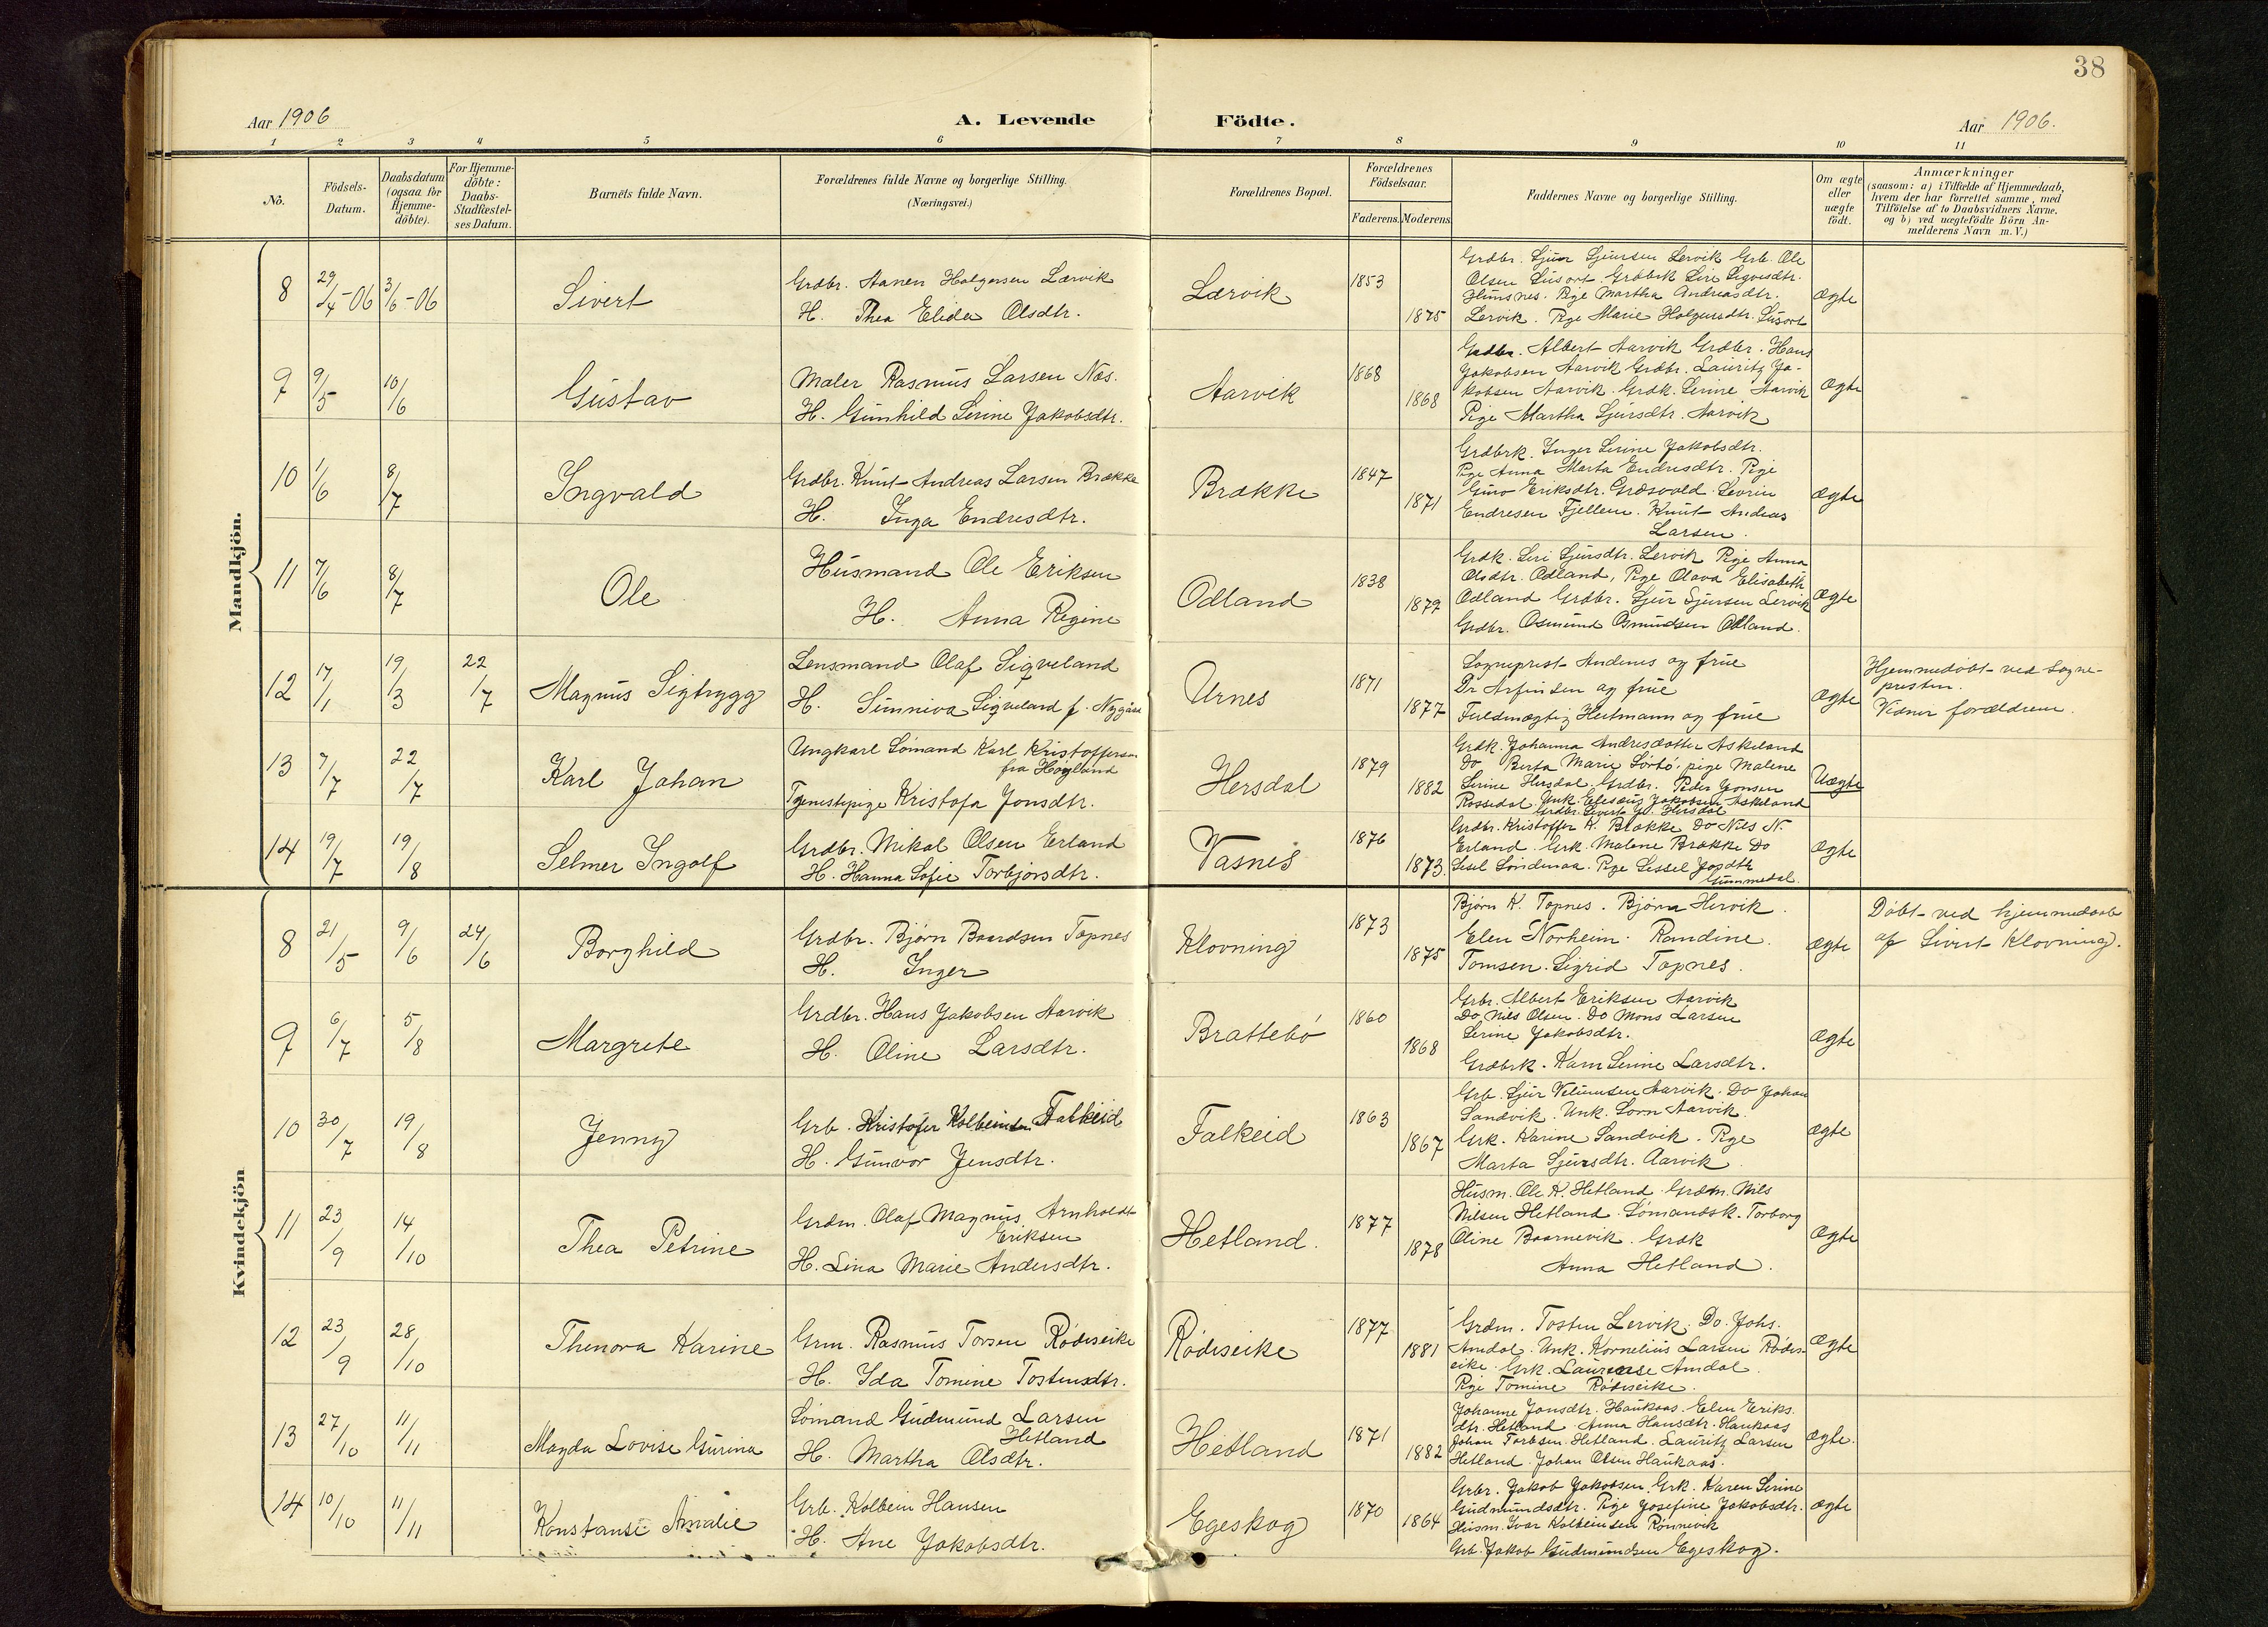 38
Aar 1906
A. Levende Födte.
Aar 1906.
1 2 3 4 5 6 7 8 9 10 11
No.
Födsels-
Datum.
Daabsdatum
(ogsaa for
Hjemme-
döbte).
For Hjemme-
döbte:
Daabs-
Stadfæstel-
ses Datum.
Barnets fulde Navn.
Forældrenes fulde Navne og borgerlige Stilling.
(Næringsvei.)
Forældrenes Bopæl.
Forældrenes
Födselsaar.
Faderens. Moderens.
Faddernes Navne og borgerlige Stilling.
Om ægte
eller
uægte
födt.
Anmærkninger
(saasom: a) i Tilfælde af Hjemmedaab,
hvem der har forrettet samme, med
Tilföielse af to Daabsvidners Navne.
og b) ved uægtefödte Börn An-
melderens Navn m. V.)
Mandkjön.
8 29/4-06 3/6-06 Sivert
Grdbr. Aanen Holgersen Lærvik
H. Thea Elida Olsdtr.
Lærvik 1853 1875
Grdbr. Sjur Sjursen Lervik Grb. Ole
Olsen Susort. Grdbrk Siri Sigvesdtr.
Hunsnes. Pige Martha Andreasdtr.
Lervik. Pige Marie Holgersdtr. Susort
Ægte
9 9/5 10/6 Gustav
Maler Rasmus Larsen Næs.
H. Gunhild Serine Jakobsdtr.
Aarvik 1868 1868
Grdbr. Albert Aarvik Grdbr. Hans
Jakobsen Aarvik Grdbr. Lauritz Ja-
kobsen Aarvik. Grdk. Serine Aarvik
Pige Martha Sjursdtr. Aarvik
Ægte
10 1/6 8/7 Ingvald
Grdbr. Knut Andreas Larsen Brække
H. Inga Endresdtr.
Brække 1847 1871
Grdbrk. Inger Serine Jakobsdtr.
Pige Anna Marta Endresdtr. Pige
Guro Eriksdtr. Græsvold. Sevrin
Endresen Fjellem. Knut Andreas
Larsen.
Ægte
11 7/6 8/7 Ole
Husmand Ole Eriksen
H. Anna Regine
Odland 1838 1879
Grdk. Siri Sjursdtr. Lervik Pige Anna
Olsdtr. Odland, Pige Olava Elisabeth
Odland Grdbr. Sjur Sjursen Lervik
Grdbr. Osmund Osmundsen Odland.
Ægte
12 17/1 19/3 22/7 Magnus Sigtrygg
Lensmand Olaf Sigveland
H. Sunniva Sigveland f. Nygaard
Urnes 1871 1877
Sogneprest Andenes og frue
Dr Arfinsen og frue
Fuldmægtig Heitmann og frue
Ægte
Hjemmedøbt ved Sogne-
presten.
Vidner forældrene.
13 7/7 22/7 Karl Johan
Ungkarl Sømand Karl Kristoffersen
fra Høgland
Tjenestepige Kristofa Jonsdtr.
Hersdal 1879 1882
Grdk. Johanna Andresdotter Askeland
Do Berta Marie Sørbø, pige Malene
Serine Hersdal, Grdbr. Peder Jonsen
Rossedal. Unk. Elesæus Jakobsen Askeland
Grdbr. Sivert Jo. Hersdal
Uægte
14 19/7 19/8 Selmer Ingolf
Grdbr. Mikal Olsen Erland
H. Hanna Sofie Torbjørsdtr.
Vasnes 1876 1873.
Grdbr. Kristoffer K. Brække Do Nils N.
Erland. Grk. Malene Brække Do
Sesel Søndenaa. Pige Sessel Jonsdtr.
Gummedal.
Ægte
Kvindekjön
8 21/5 9/6 24/6 Borghild
Grdbr. Bjørn Baardsen Topnes
H. Inger
Klovning 1873 1875
Bjørn K. Topnes. Bjørn Hervik.
Elen Norheim. Randine.
Tomsen. Sigrid Topnes.
Ægte
Døbt ved hjemmedaab
af Sivert Klovning.
9 6/7 5/8 Margrete
Grdbr. Hans Jakobsen Aarvik
H. Oline Larsdtr.
Brattebø 1860 1868
Grbr. Albert Eriksen Aarvik
Do Nils Olsen. Do Mons Larsen
Serine Jakobsdtr.
Grdbrk. Karn Serine Larsdtr.
Ægte
10 30/7 19/8 Jenny
Grb. Kristofer Kolbeinsen Falkeid
H. Gunvor Jensdtr.
Falkeid 1863 1867
Grb. Sjur Velumsen Aarvik. Do Johan
Sandvik. Unk. Sorn Aarvik.
Grk. Karine Sandvik. Pige
Marta Sjursdtr. Aarvik.
Ægte
11 23/9 14/10 Thea Petrine
Grdm. Olaf Magnus Arnholdt
Eriksen
H. Lina Marie Andersdtr.
Hetland. 1877 1878
Husm. Ole K. Hetland. Grdm. Nils
Nilsen Hetland. Sømandsk. Torborg
Oline Baarnevik. Grdk
Anna Hetland.
Ægte
12 23/9 28/10 Thenora Karine
Grm. Rasmus Torsen Rødiseike
H. Ida Tomine Tostensdtr.
Rødiseike 1877 1881
Grdm. Tosten Lervik. Do. Johs.
Amdal. Unk. Kornelius Larsen Rødis-
eike. Grk. Laurense Amdal.
Pige Tomine Rødiseike.
Ægte
13 27/10 11/11 Magda Lovise Gurina
Sømand Gudmund Larsen
Hetland
H. Martha Olsdtr.
Hetland 1871 1882
Johanne Jonsdtr. Haukaas. Elen Eriks.
dtr. Hetland. Anna Hansdtr. Haukaas
Johan Torbsen Hetland. Lauritz Larsen
Hetland. Johan Olsen Haukaas.
Ægte.
14 10/10 11/11 Konstanse Amalie
Grb. Kolbein Hansen
H. Ane Jakobsdtr.
Egeskog 1870 1864
Grbr. Jakob Jakobsen. Grk. Karen Serine
Gudmundsdtr. Pige Josefine Jakobsdtr.
Husm. Ivar Kolbeinsen Rønnevik
Grb. Jakob Gudmundsen Egeskog.
Ægte